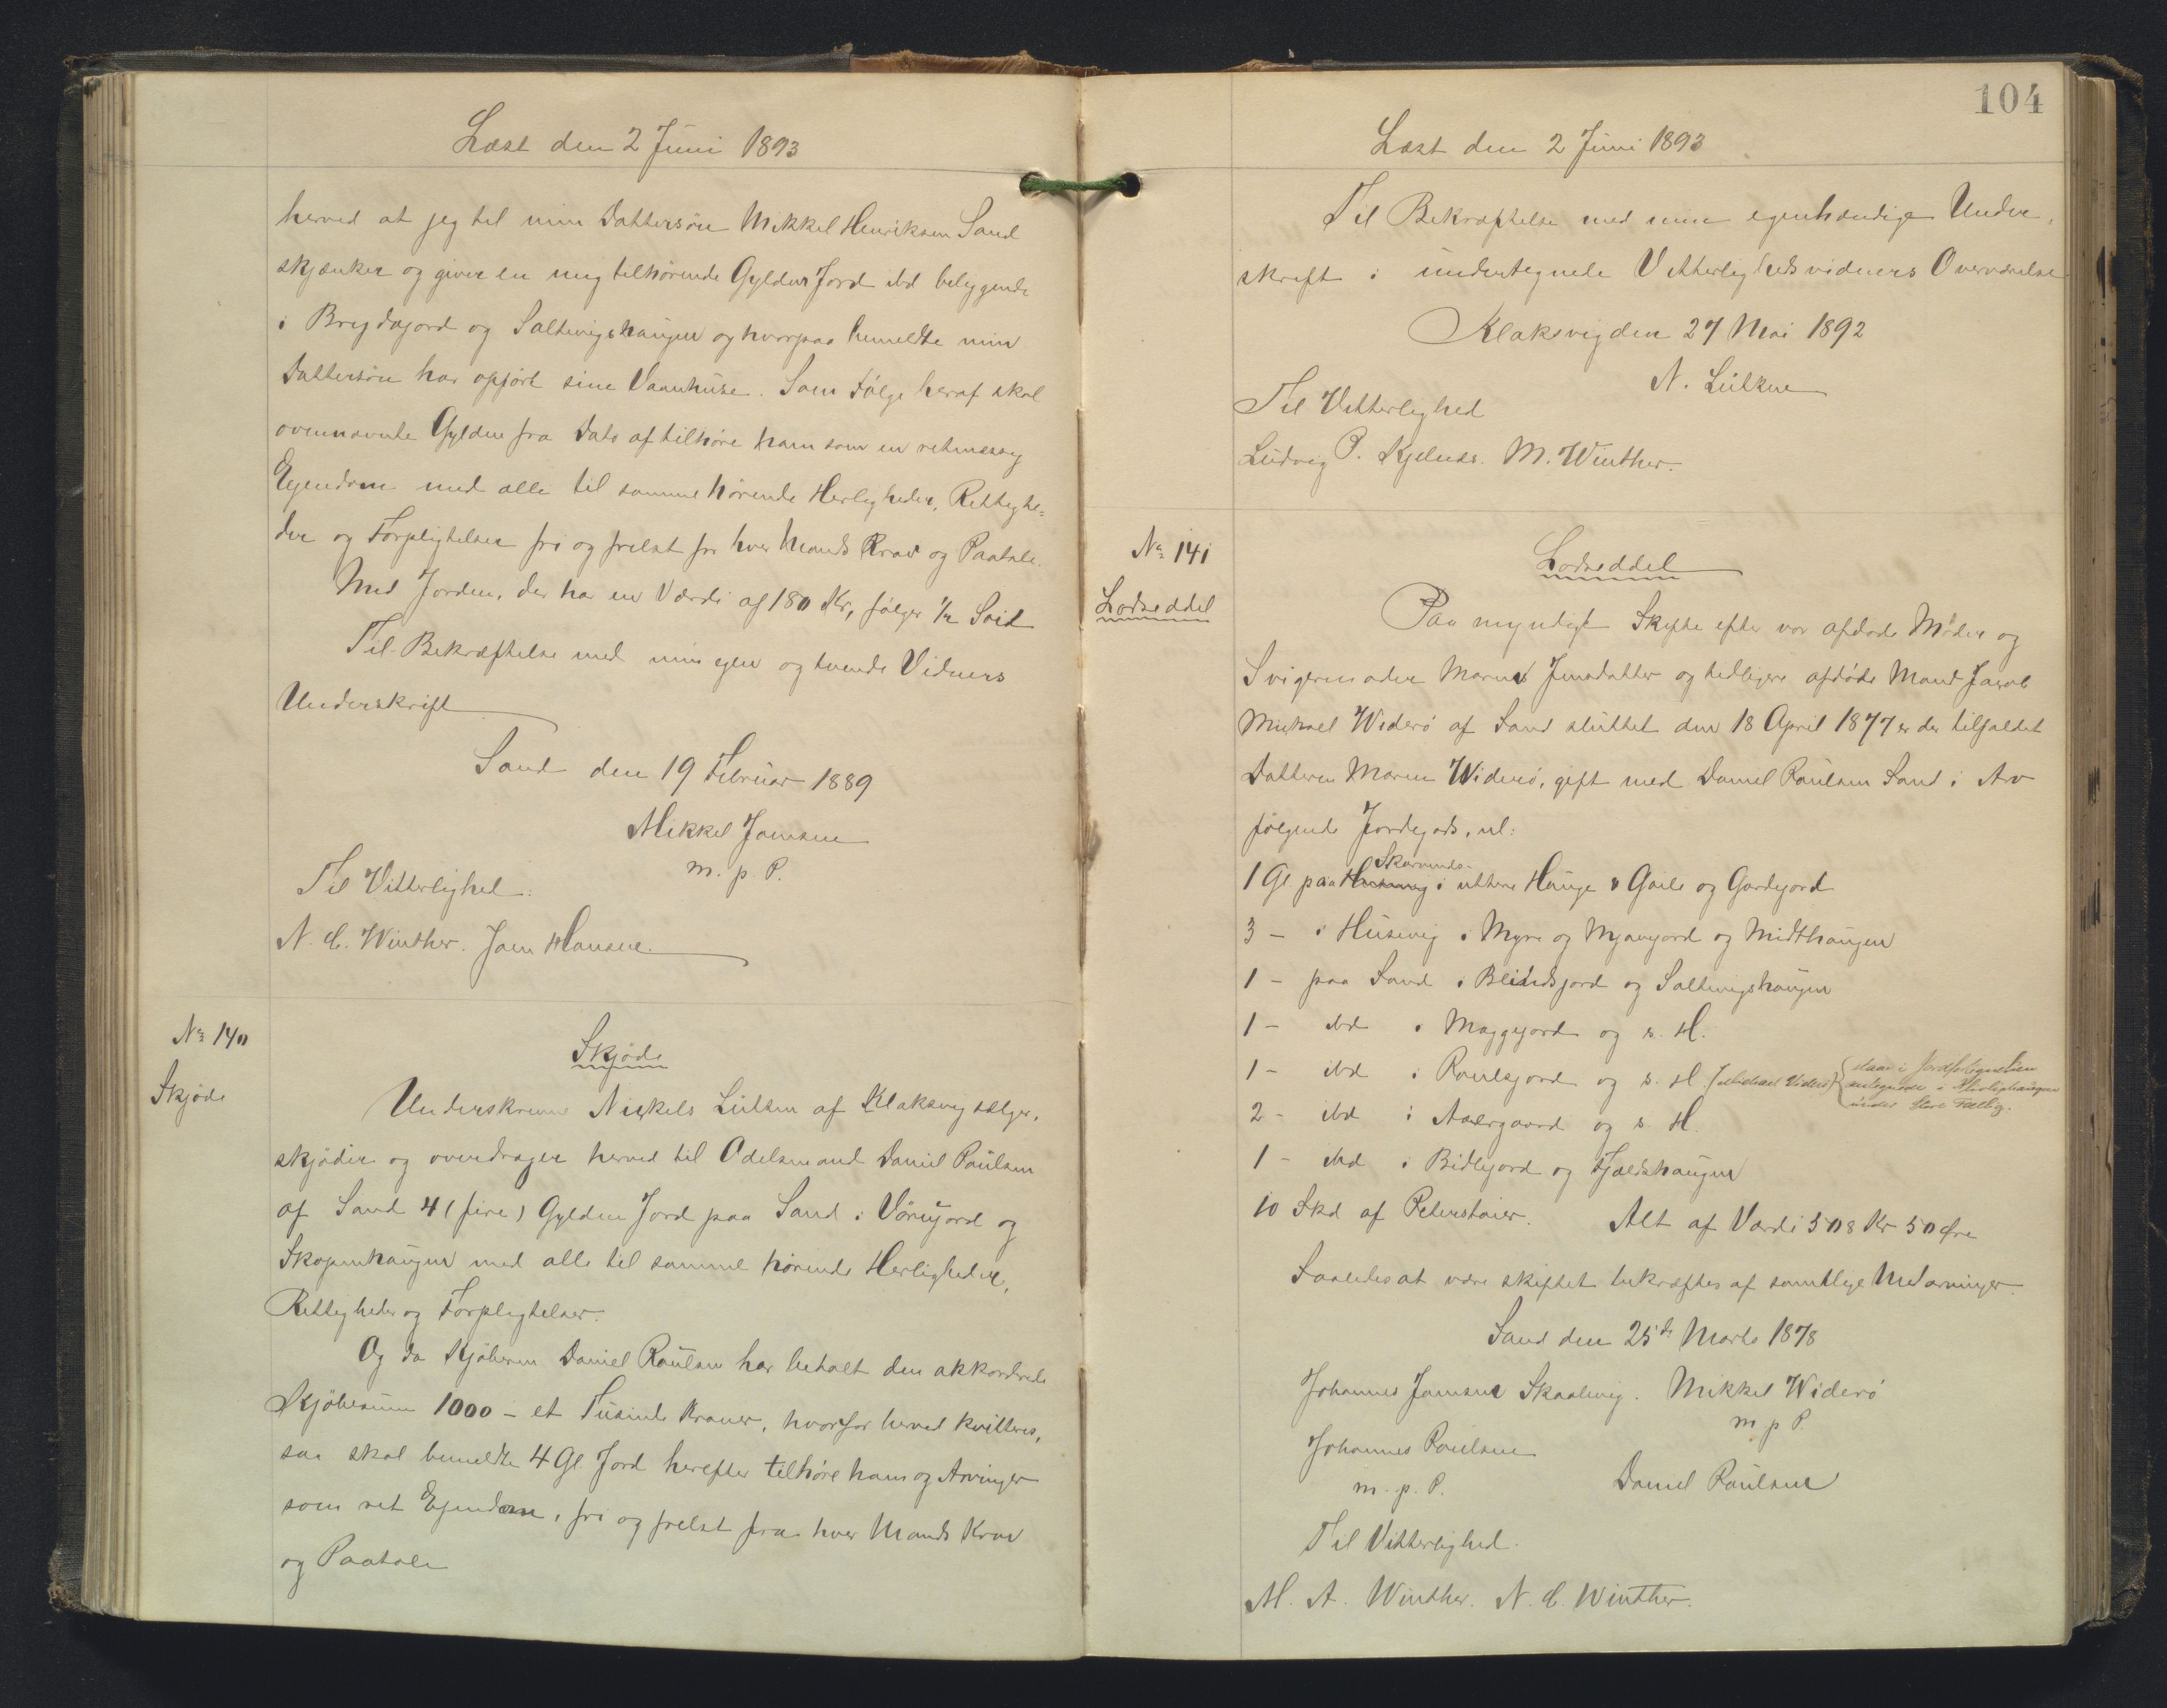 Læst den 2 Juni 1893
herved at jeg til min Dattersön Mikkel Henriksen Sand
skjænker og giver en mig tilhørende Gylden Jord ibd beliggende
i Brydagjord og Saltvigshaugen og hvorpaa bemeldte min
Dattersön har opført sine Vaanhuse. Som Følge heraf skal
ovennævnte Gylden fra Dato af tilhøre ham som en retmæssig
Ejendom med alle til samme hørende Herligheder, Rettighe=
der og Forpligtelser fri og frelst for hver Mands Krav og Paatale.
Med Jorden, der har en Værdi af 180 Kr, følger ½ Soid
Til Bekræftelse med min egen og tvende Vidners
Underskrift
Sand den 19 Februar 1889
Mikkel Joensen
m. p. P.
Til Vitterlighed:
N. C. Winther. Joen Hansen.
No 140
Skjøde
Skjøde
Underskrevne Nickels Lützen af Klaksvig sælger,
skjøder og overdrager herved til Odelsmand Daniel Poulsen
af Sand 4 (fire) Gylden Jord paa Sand i Vörugjord og
Skopunhaugen med alle til samme hørende Herligheder,
Rettigheder og Forpligtelser.
Og da Kjøberen Daniel Poulsen har betalt den akkorderede
Kjøbesum 1000 – et Tusinde Kroner, hvorfor herved kvitteres,
saa skal bemeldte 4 Gl. Jord herefter tilhøre ham og Arvinger
som ret Ejendom, fri og frelst fra hver Mands Krav
og Paatale
104
Læst den 2 Juni 1893
Til Bekræftelse med min egenhændige Under,
skrift i undertegnede Vitterlighedsvidners Overværelse
Klaksvig den 27 Mai 1892
N. Lützen
Til Vitterlighed
Ludvig P. Kjelnæs. M. Winther.
No 141
Lodseddel
Lodseddel
Paa myndigt Skifte efter vor afdøde Moder og
Svigermoder Maren Jensdatter og tidligere afdøde Mand Jacob
Michael Widerö af Sand sluttet den 18 April 1877 er der tilfaldet
Datteren Maren Widerö, gift med Daniel Poulsen Sand i Arv
følgende Jordegods, nl:
1 Gl. paa Skarvenes i uttere Hauge i Gaile og Gardejord
3 – i Husevig i Myre og Myavjord og Midthaugen
1 – paa Sand i Blindsjord og Saltvigshaugen
1 – ibd i Maggejord og s. H.
1 – ibd i Poulsjord og s. H. (Michael Viderö) {staar i Jordfortegnelsen
antegnede i
under Store Fællig.
2 – ibd i Aalergaard og s. H.
1 – ibd i Bidlejord og Fjældshaugen
10 Skd af Peterstaier. Alt af Værdi 508 Kr 50 Øre
Saaledes at være skiftet bekræftes af samtlige Medarvinger.
Sand den 25de Marts 1878
Johannes Joensen Skaalevig. Mikkel Widerö
m p P.
Johannes Poulsen
m. p. P.
Daniel Poulsen
Til Vitterlighed.
M. A. Winther. N. C. Winther.